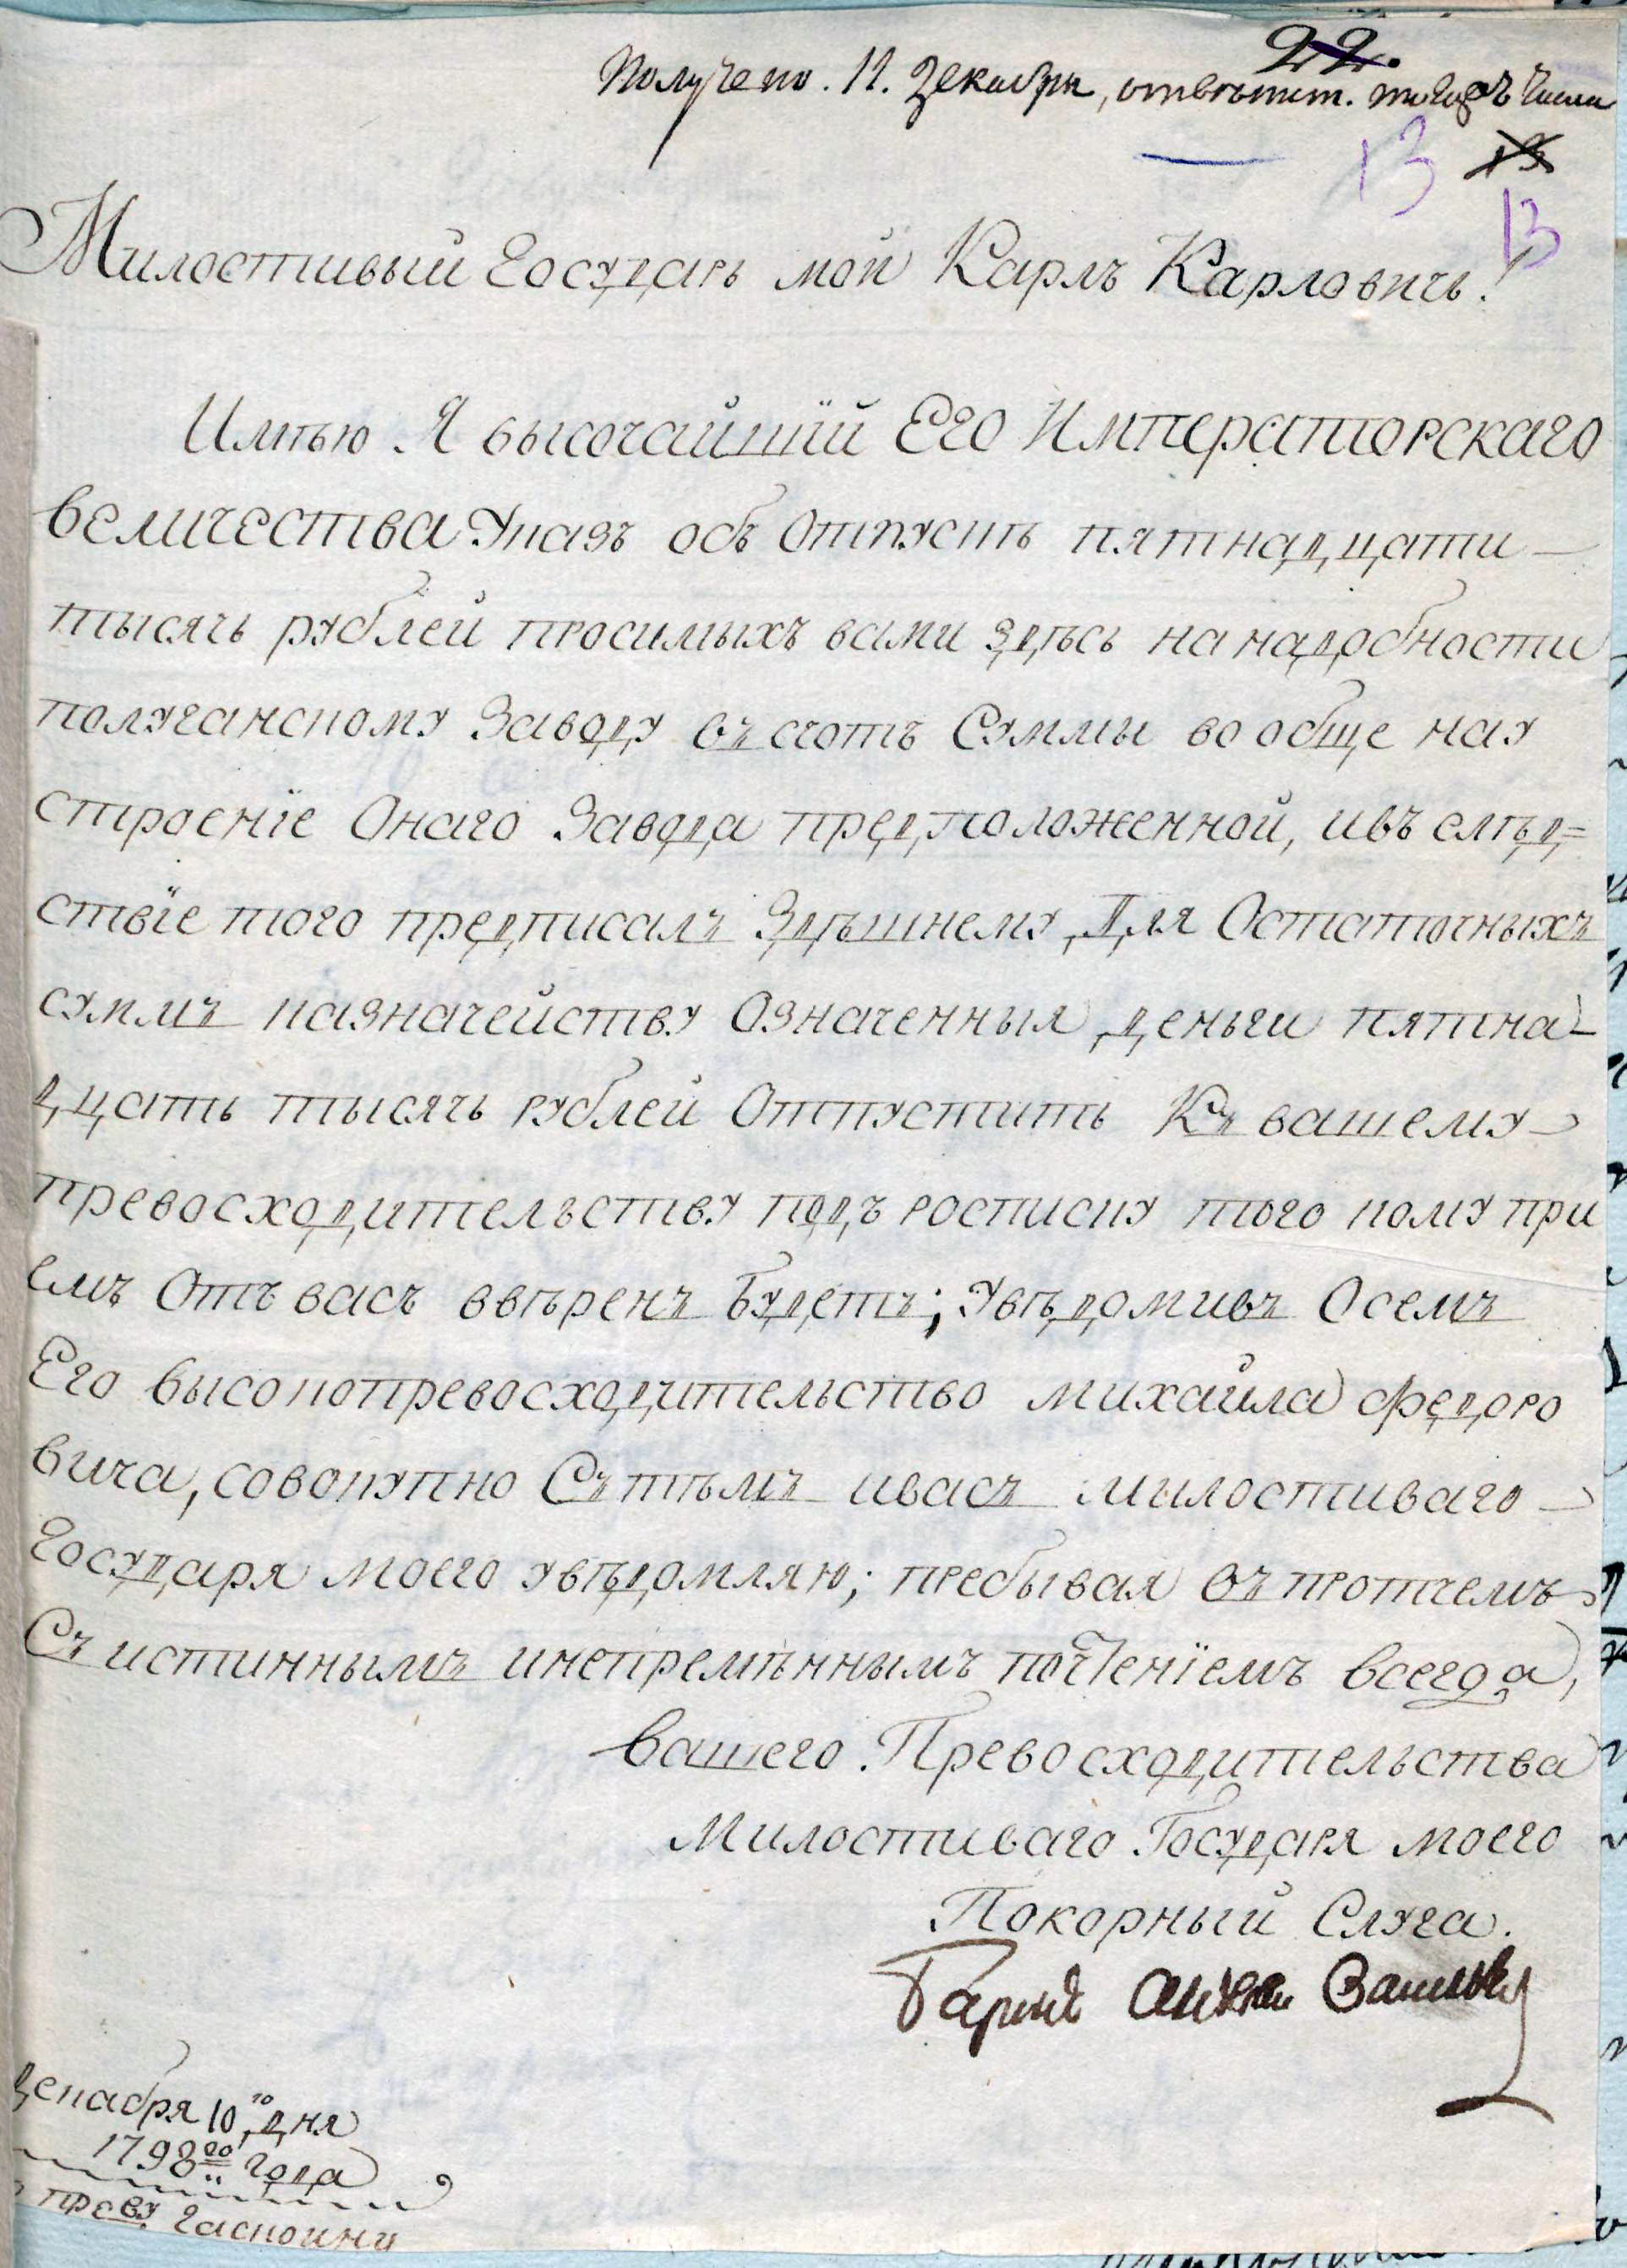 22.
Получено. 11. Декабря, отвѣтст. тогожъ числа
13 13
13
Милостивый Государь мой Карлъ Карловичь!
Имѣю Я высочайшїй Его Императорскаго
величества Указъ объ Отпускѣ пятнадцати
тысячь рублей просимыхъ вами здѣсь на надобности
полуганскому Заводу въ счотъ Суммы вообще на у
строенїе Онаго Завода предположенной, ивъ слѣд=
ствїе того предписалъ Здѣшнему Для Остаточныхъ
суммъ казначейству Означенныя деньги пятна-
дцать тысячь рублей Отпустить Къ вашему
превосходительству подъ росписку того кому при
емъ Отъ васъ ввѣренъ Будетъ; Увѣдомивъ Осемъ
Его высокопревосходительство михайла федоро
вича, совокупно Сътѣмъ ивасъ милостиваго
Государя моего увѣдомляю; пребывая въпротчемъ
Съ истиннымъ инепремѣннымъ почтенїемъ всегда,
вашего Превосходительства
Милостиваго Государя моего
Покорный Слуга.
Баронъ Алексѣй Васильевъ
декабря 10го дня
1798го года
прву Гаскоини